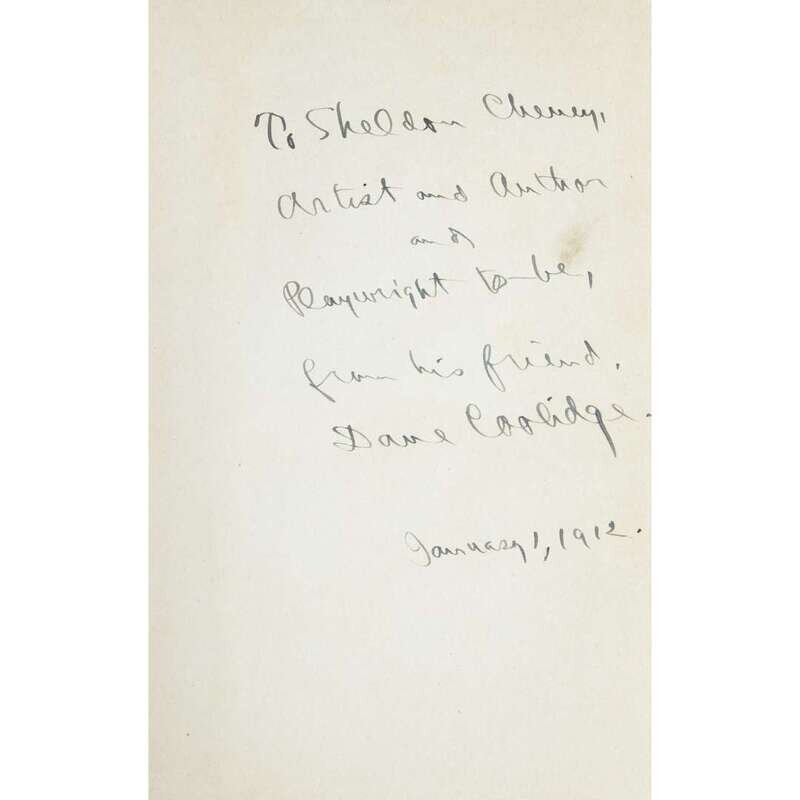 To Sheldon Cheney,
Artist and Author
and
Playwright to-be,
from his friend,
Dane Coolidge.
January 1, 1912.